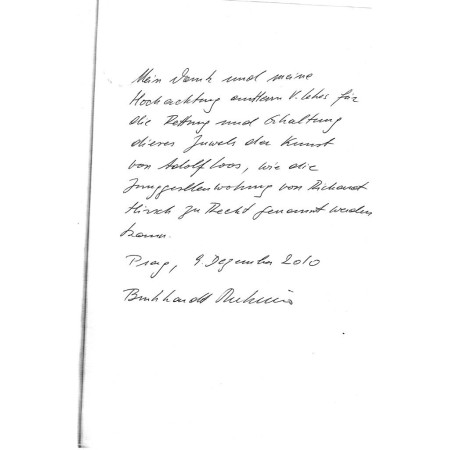 Mein Dank und meine
Hochachtung an Herrn V. Lekes für
die Rettung und Erhaltung
dieses Juwels der Kunst
von Adolf Loos, wie die
Junggesellenwohnung von Richard
Hirsch zu Recht genannt werden
kann.
Prag, 9. Dezember 2010
Burkhardt